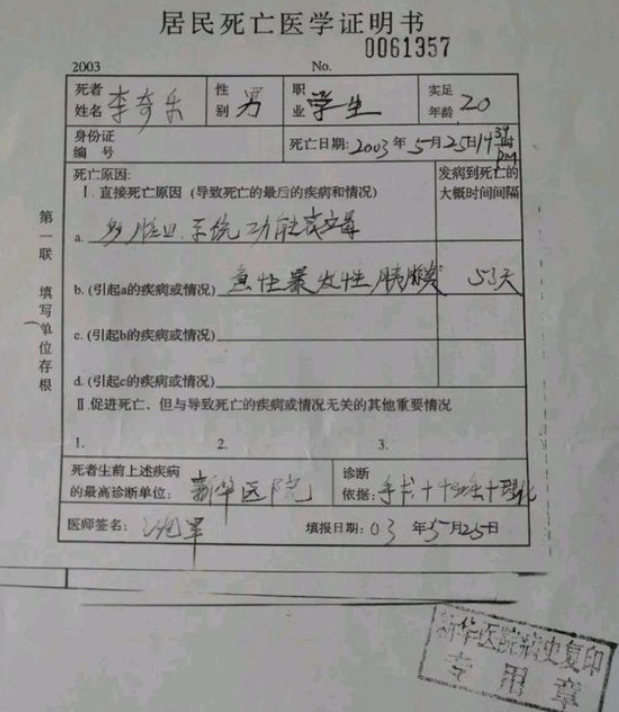 居民死亡医学证明书
0061357
2003 No.
死者姓名 李奇乐 性别 男 职业 学生 实足年龄 20
身份证编号 死亡日期:2003年5月25日
死亡原因: 发病到死亡的大概时间间隔
Ⅰ.直接死亡原因(导致死亡的最后的疾病和情况)
a. 多脏器系统功能衰竭
b.(引起a的疾病或情况) 急性暴发性胰腺炎 53天
c.(引起b的疾病或情况)
d.(引起c的疾病或情况)
Ⅱ.促进死亡、但与导致死亡的疾病或情况无关的其他重要情况
1. 2. 3.
死者生前上述疾病的最高诊断单位: 新华医院 诊断依据: 手术
医师签名: 填报日期:03年5月25日
第一联 填写单位存根
新华医院病史复印
专用章